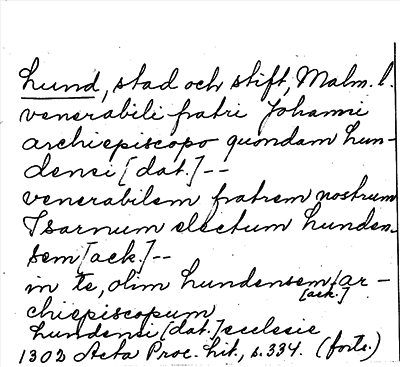 Lund, stad och stift, Malm. l.
venerabili fratri Johanni
archiepiscopo quondam Lun-
densi [dat.] --
venerabilem fratrem nostrum
Isarnum electum Lunden-
sem [ack.] --
in te, olim Lundensem [ack.] ar-
chiepiscopum
Lundensi [dat.] ecclesie
1302 Acta Proc. Lit., s. 334. (forts.)